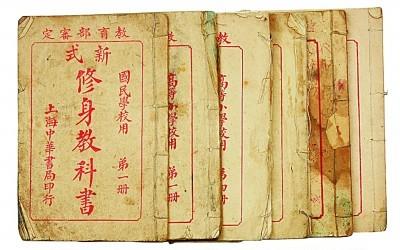 教育部審定
新式
國民學校用 第一册
修身教科書
上海中華書局印行
教
高等小學校用 第一册
教
高等小學校用